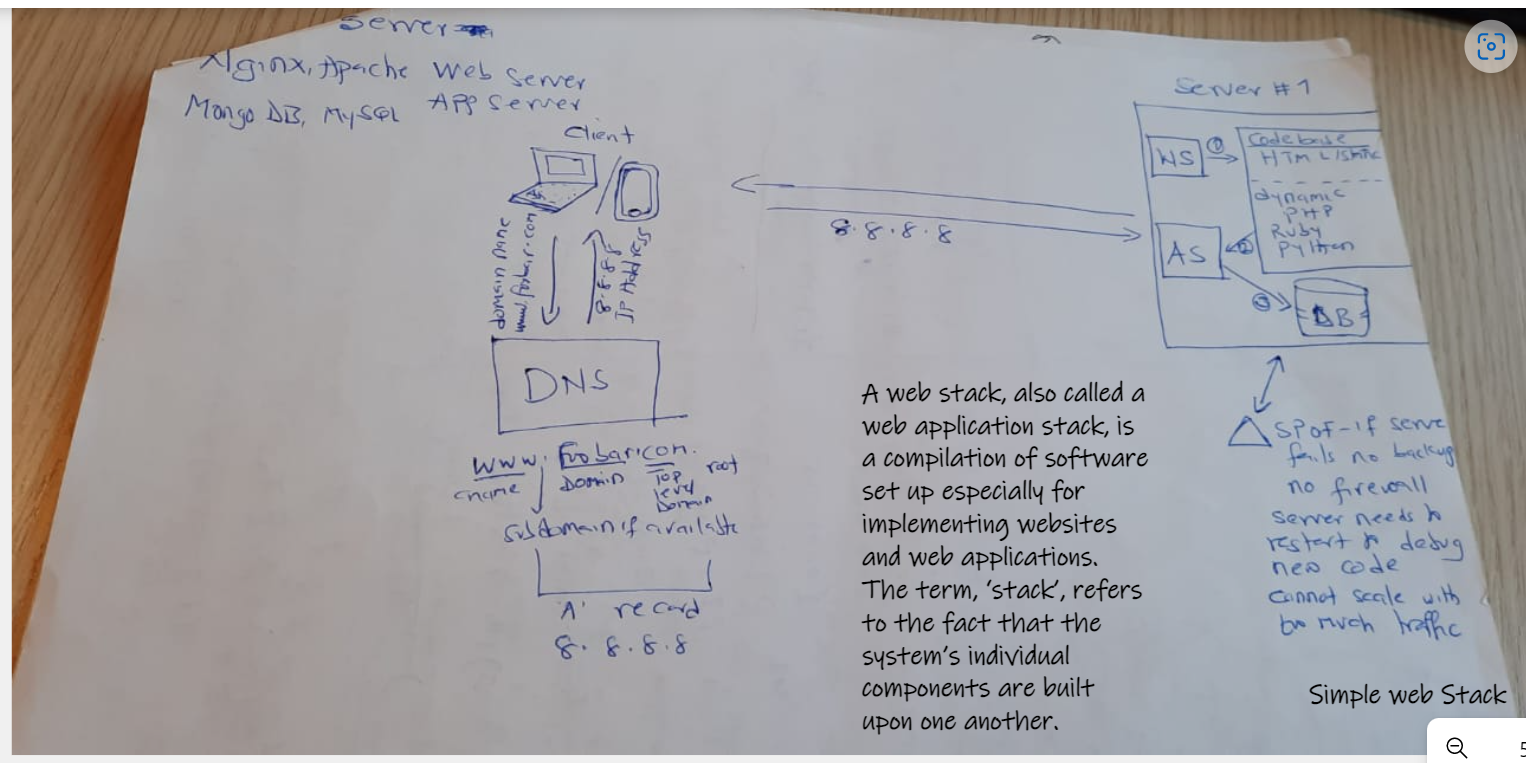 Server
Nginx, Apache Web Server
Mongo DB, MySQL APP Server
Client
domain name
www.foobar.com
8.8.8.8
IP Address
DNS
www. Foobar.com.
cname
Domain
Top
level
Domain
root
Subdomain if available
'A' record
8. 8.8.8
8.8.8.8
Server #1
WS
1
Codebase
HTML/Static
dynamic
PHP
Ruby
Python
AS
2
3
DB
SPOF-if serve
fails no backup
no firewall
Server needs to
restart to debug
new code
Cannot scale with
too much traffic
A web stack, also called a
web application stack, is
a compilation of software
set up especially for
implementing websites
and web applications.
The term, 'stack', refers
to the fact that the
system's individual
components are built
upon one another.
Simple web Stack
5